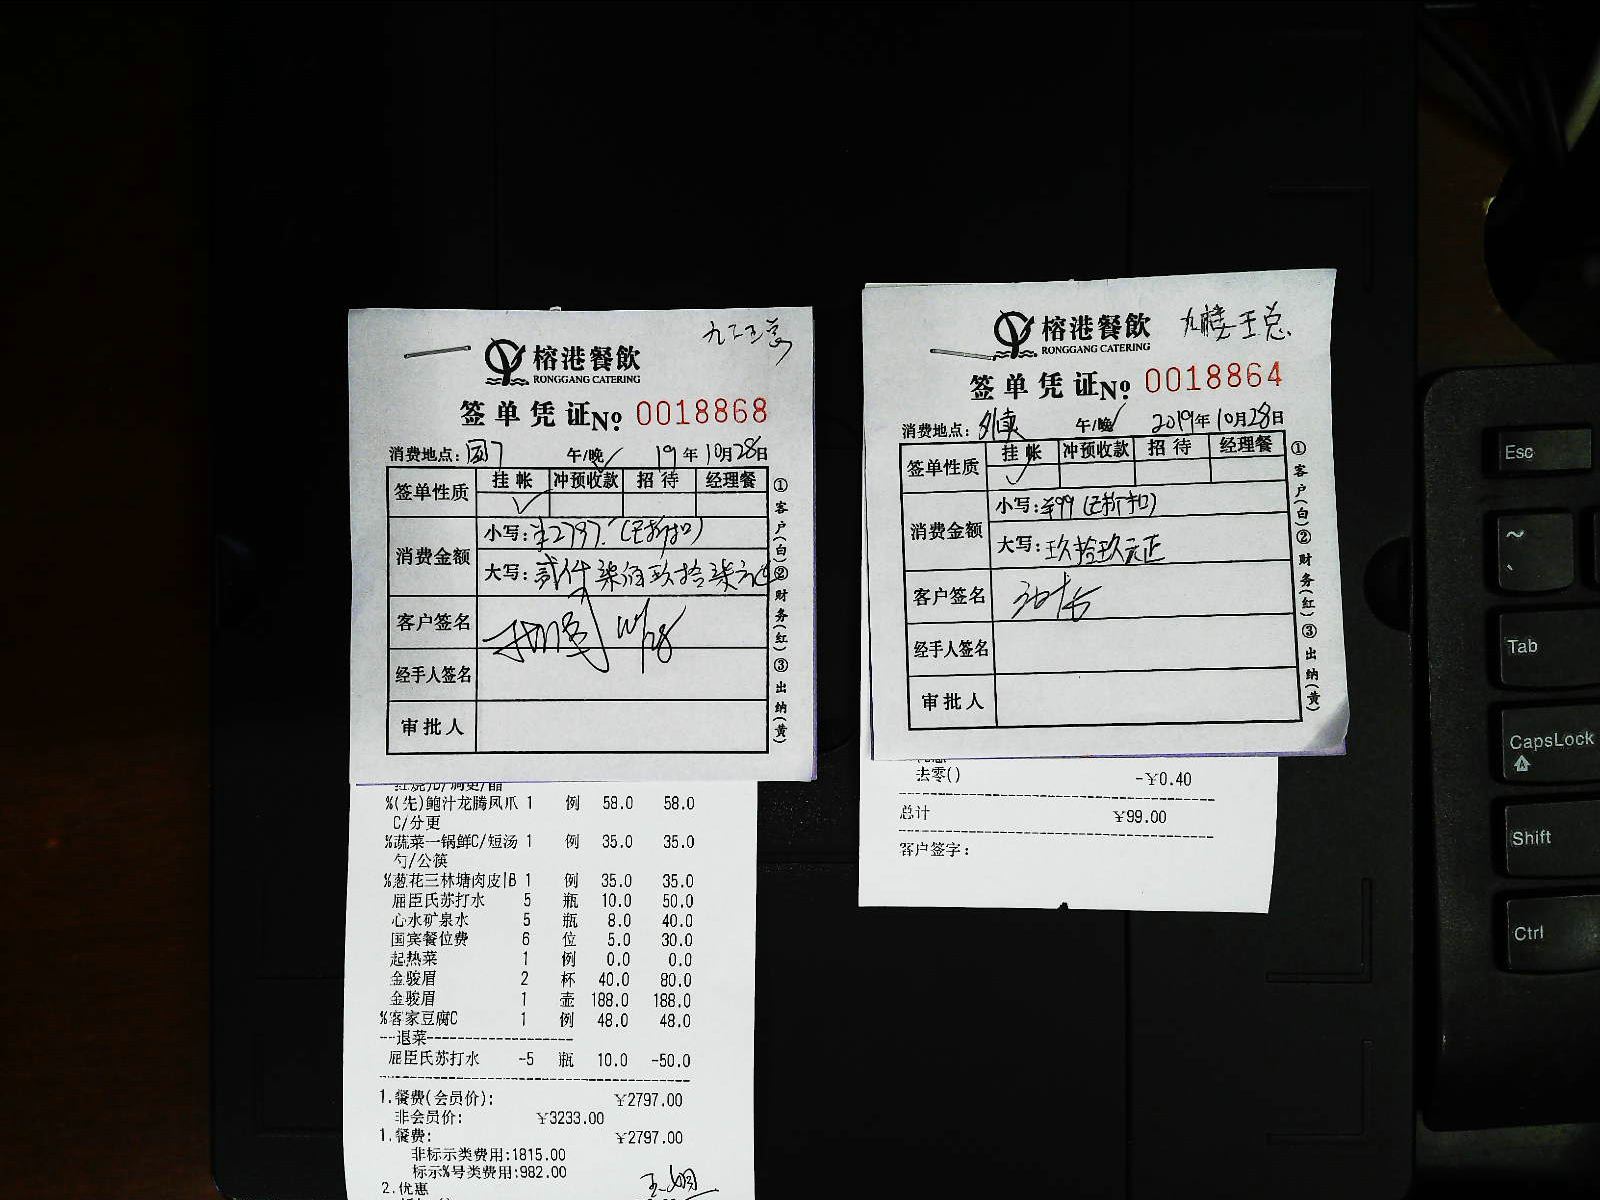 榕港餐飲
RONGGANG CATERING
签单凭证No. 0018868
消费地点: 午/晚 19年10月28日
签单性质 挂帐 冲预收款 招待 经理餐
消费金额
小写: ¥2797.(已折扣)
大写: 贰仟柒佰玖拾柒元正
客户签名 10/28
经手人签名
审批人
①客户(白)②财务(红)③出纳(黄)
%(先)鲍汁龙腾凤爪 1 例 58.0 58.0
C/分更
%蔬菜一锅鲜C/短汤 1 例 35.0 35.0
勺/公筷
%葱花三林塘肉皮|B 1 例 35.0 35.0
屈臣氏苏打水 5 瓶 10.0 50.0
心水矿泉水 5 瓶 8.0 40.0
国宾餐位费 6 位 5.0 30.0
起热菜 1 例 0.0 0.0
金骏眉 2 杯 40.0 80.0
金骏眉 1 壶 188.0 188.0
%客家豆腐C 1 例 48.0 48.0
---退菜---
屈臣氏苏打水 -5 瓶 10.0 -50.0
1.餐费(会员价): ¥2797.00
非会员价: ¥3233.00
1.餐费: ¥2797.00
非标示类费用:1815.00
标示%号类费用:982.00
2.优惠
九楼王总
榕港餐飲
RONGGANG CATERING
签单凭证No. 0018864
消费地点: 午/晚 2019年10月28日
签单性质 挂帐 冲预收款 招待 经理餐
消费金额
小写: ¥99(已折扣)
大写: 玖拾玖元正
客户签名
经手人签名
审批人
①客户(白)②财务(红)③出纳(黄)
去零() -¥0.40
总计 ¥99.00
客户签字:
Esc
~
Tab
CapsLock
Shift
Ctrl